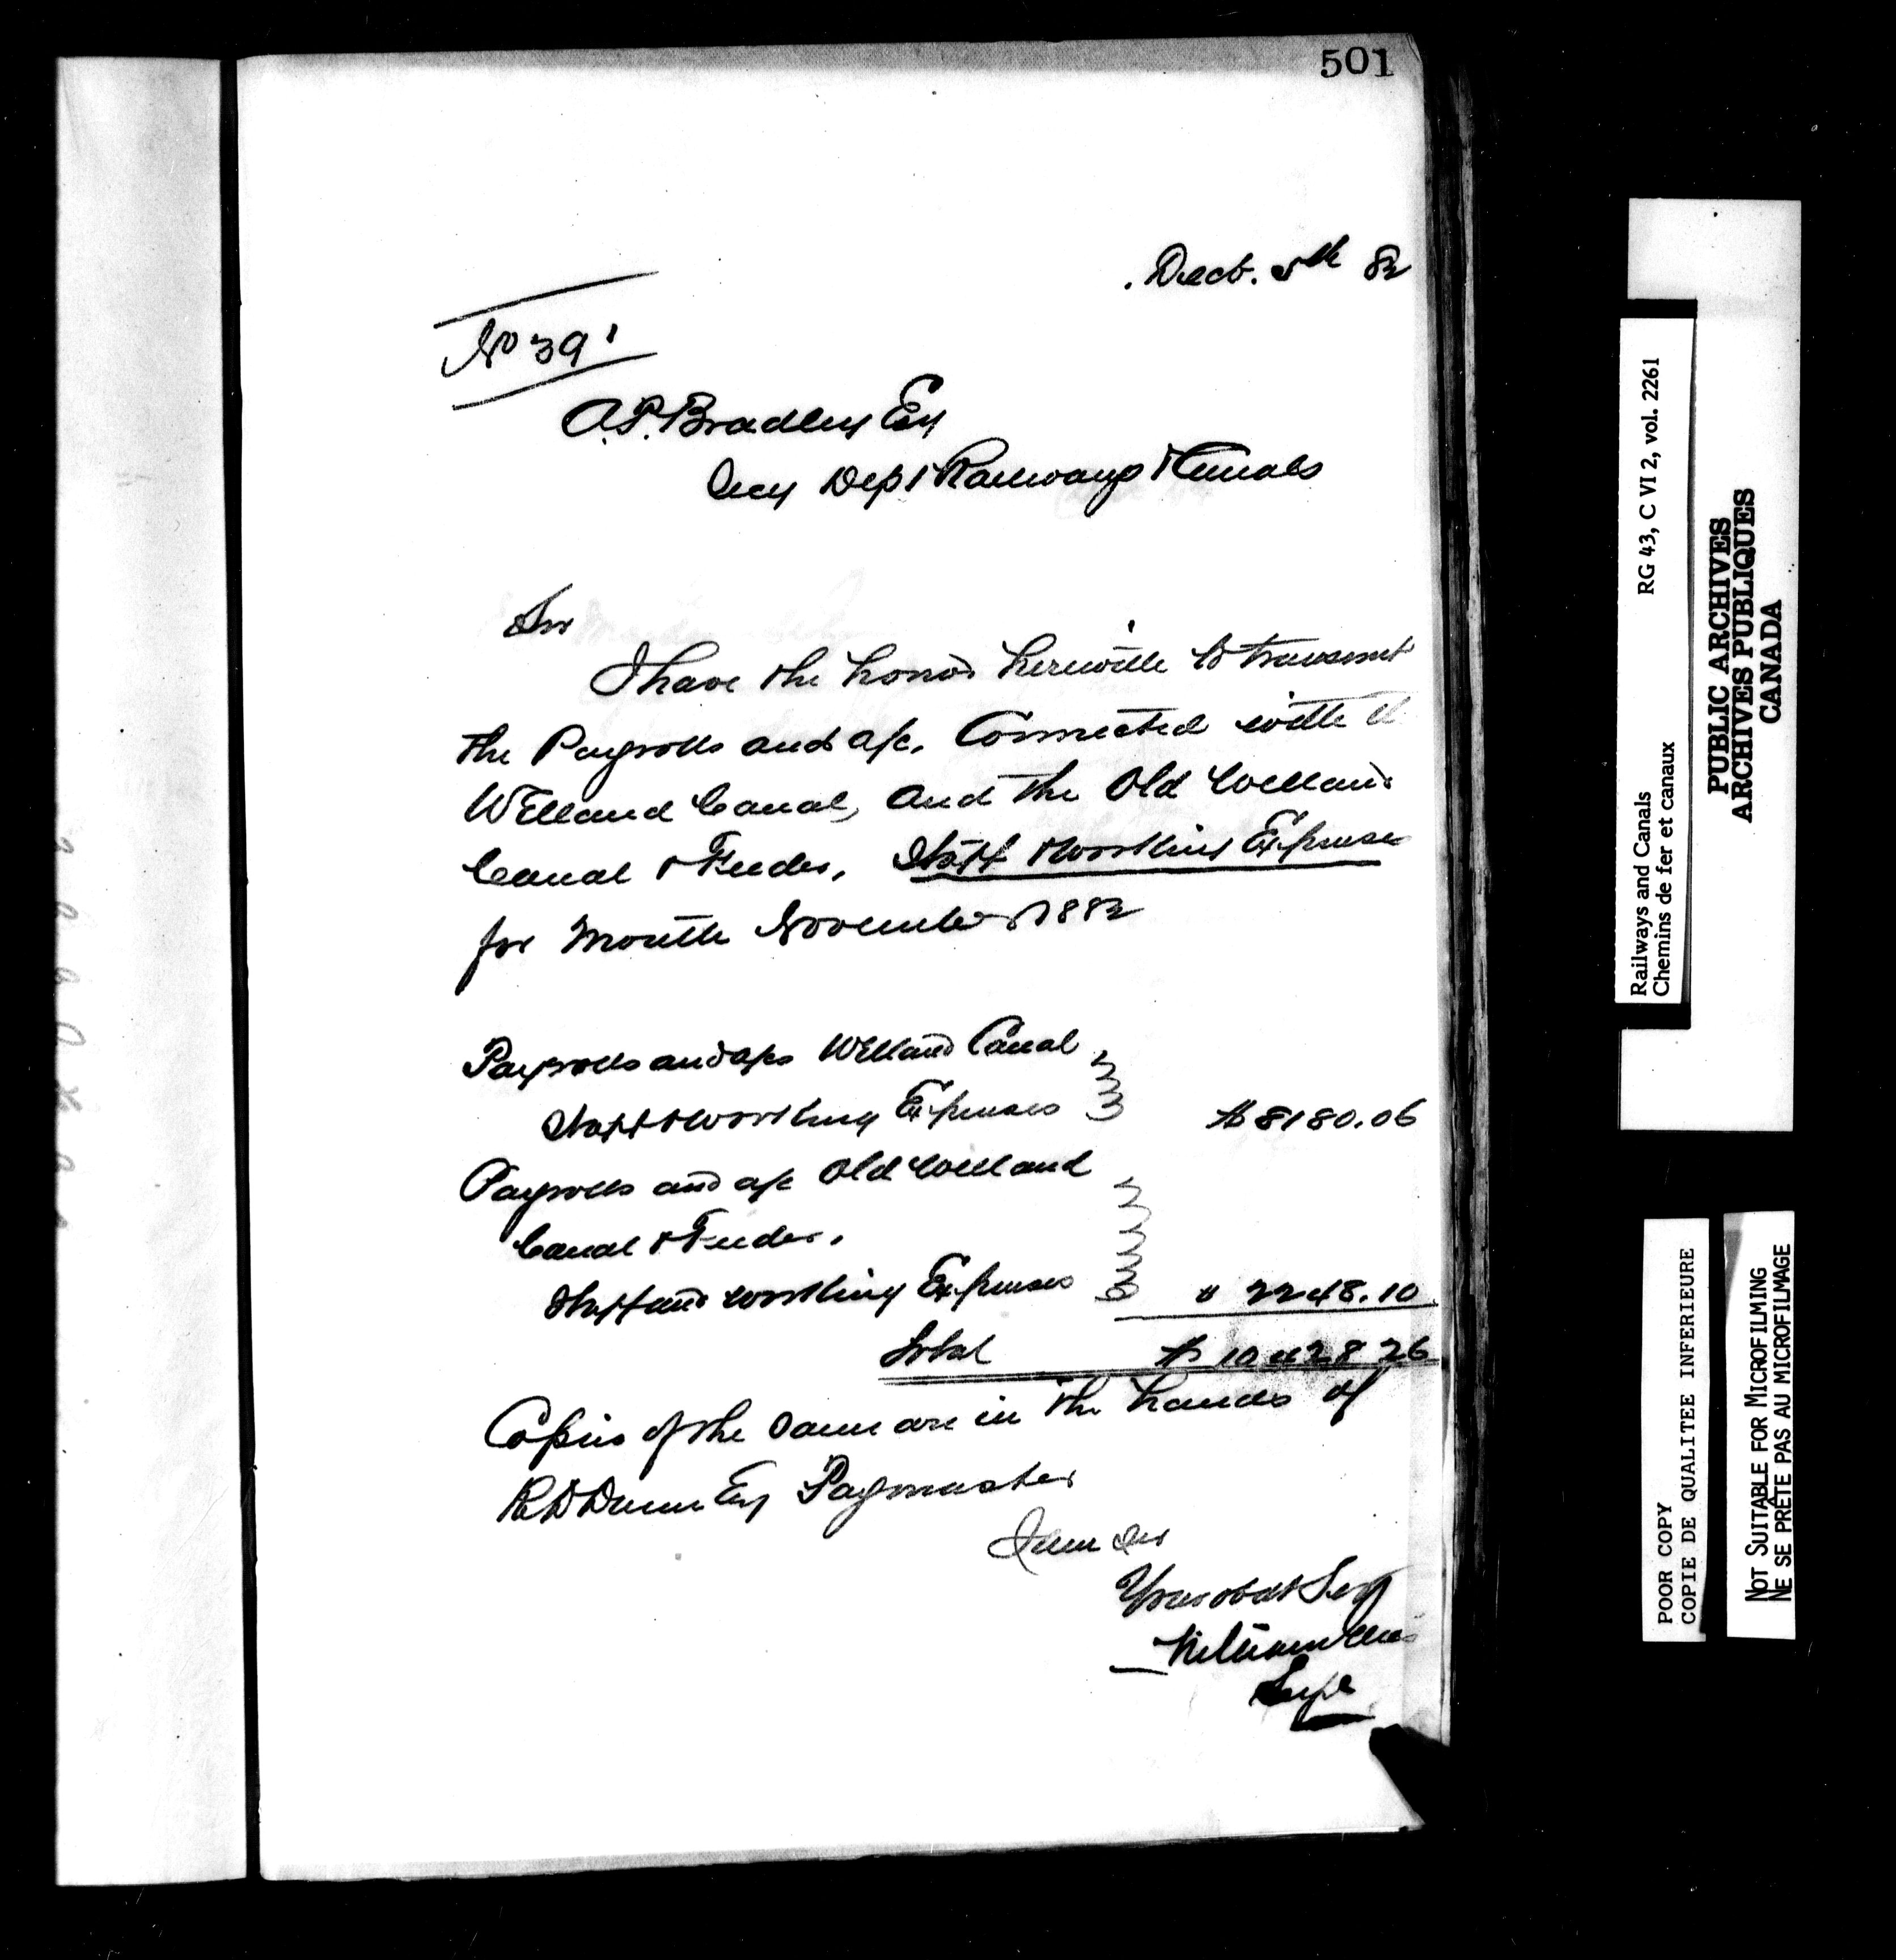 501
Decb. 5th 82
No 391
A.P. Bradley Esq
Secy Dept Railways & Canals
Sir
I have the honor herewith to transmit
the Payrolls and a/c. Connected with th
Welland Canal, and the Old Welland
Canal & Feeder, Staff & Working Expenses
for Month November 1882
Payrolls and a/cs Welland Canal
Staff & Working Expenses $8180.06
Payrolls and a/c Old Welland
Canal & Feeder.
Staff and working Expenses " 2248.10
Total $ 10428 26
Copies of the same are in the hands of
R D Dunn Esq Paymaster
I am Sir
Your obdt Serv
William Ellis
Supt
Railways and Canals RG 43, C VI 2, vol. 2261
Chemins de fer et canaux
PUBLIC ARCHIVES
ARCHIVES PUBLIQUES
CANADA
POOR COPY
COPIE DE QUALITEE INFERIEURE
NOT SUITABLE FOR MICROFILMING
NE SE PRÊTE PAS AU MICROFILMAGE